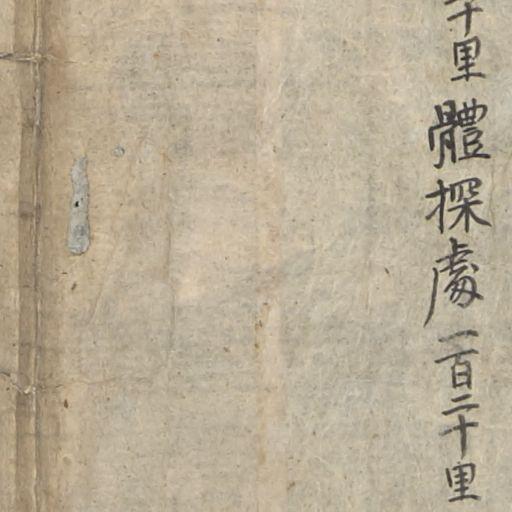 十里 體探處 一百二十里